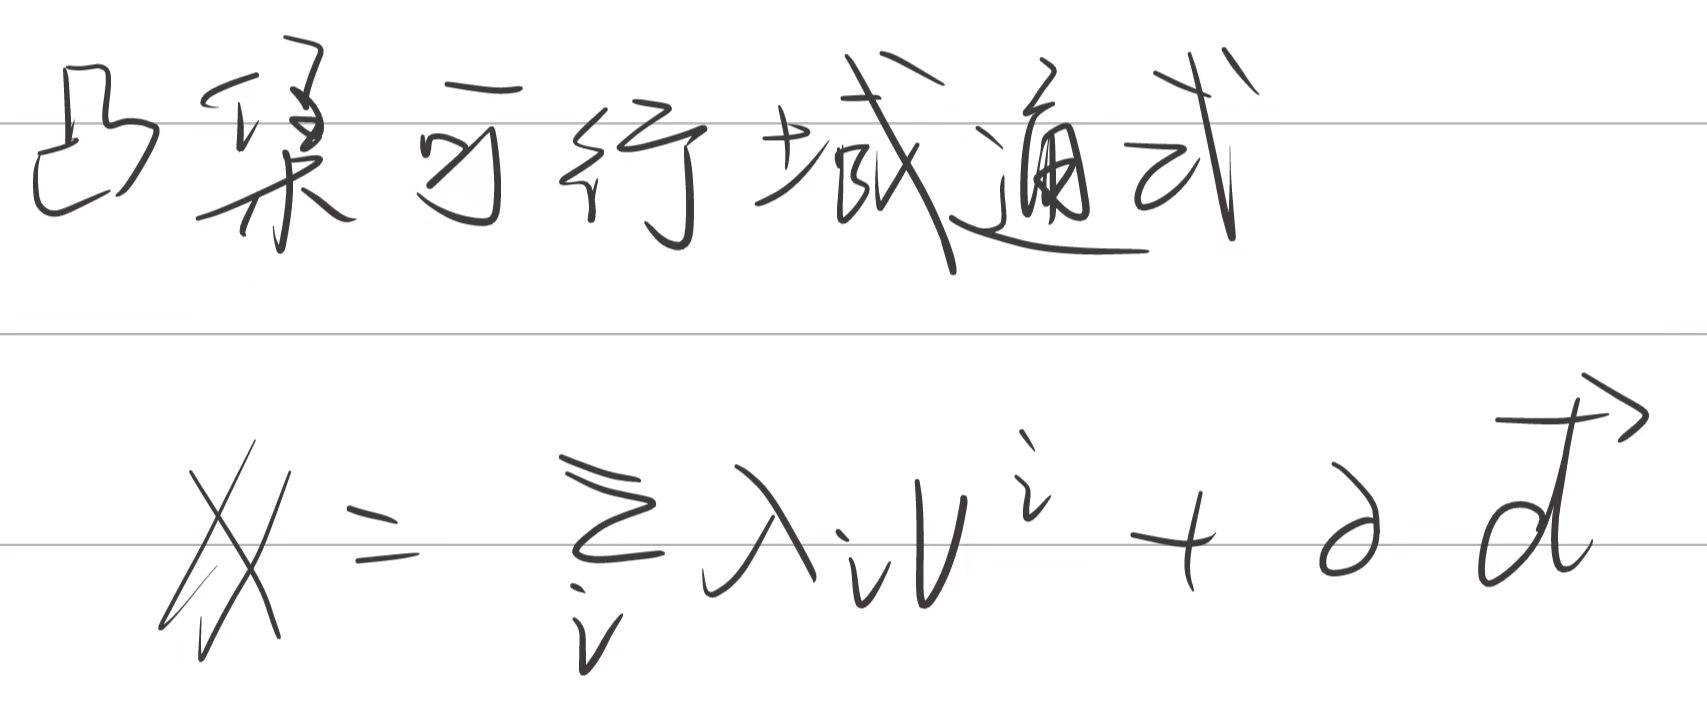 凸集可行域通式
x = Σ_i λ_i v^i + ∂ d⃗